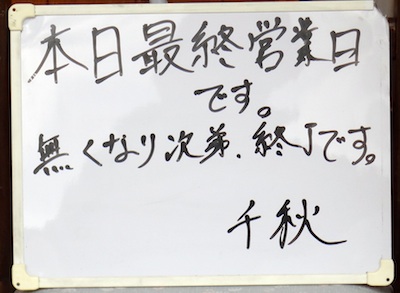 本日最終営業日
です。
無くなり次第、終了です。
千秋